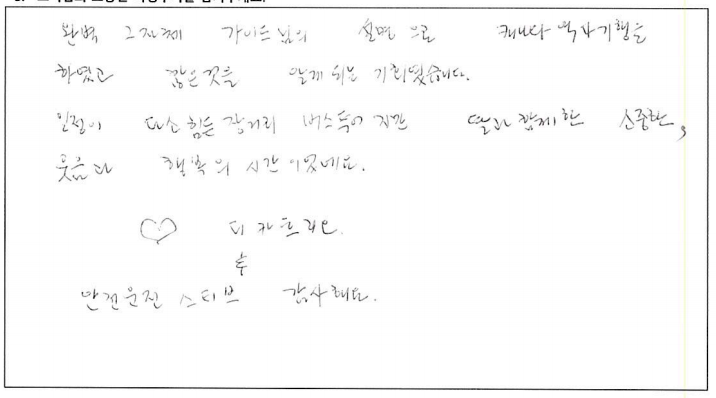 완벽 그자체 가이드님의 설명으로 캐나다 역사기행을
하였고 많은것을 알게 되는 기회였습니다.
일정이 다소 힘든 장거리 버스투어 지만 딸과 함께한 소중한,
웃음과 행복의 시간 이였네요.
♡ 디카프리오.
안전운전 스티브 감사해요.